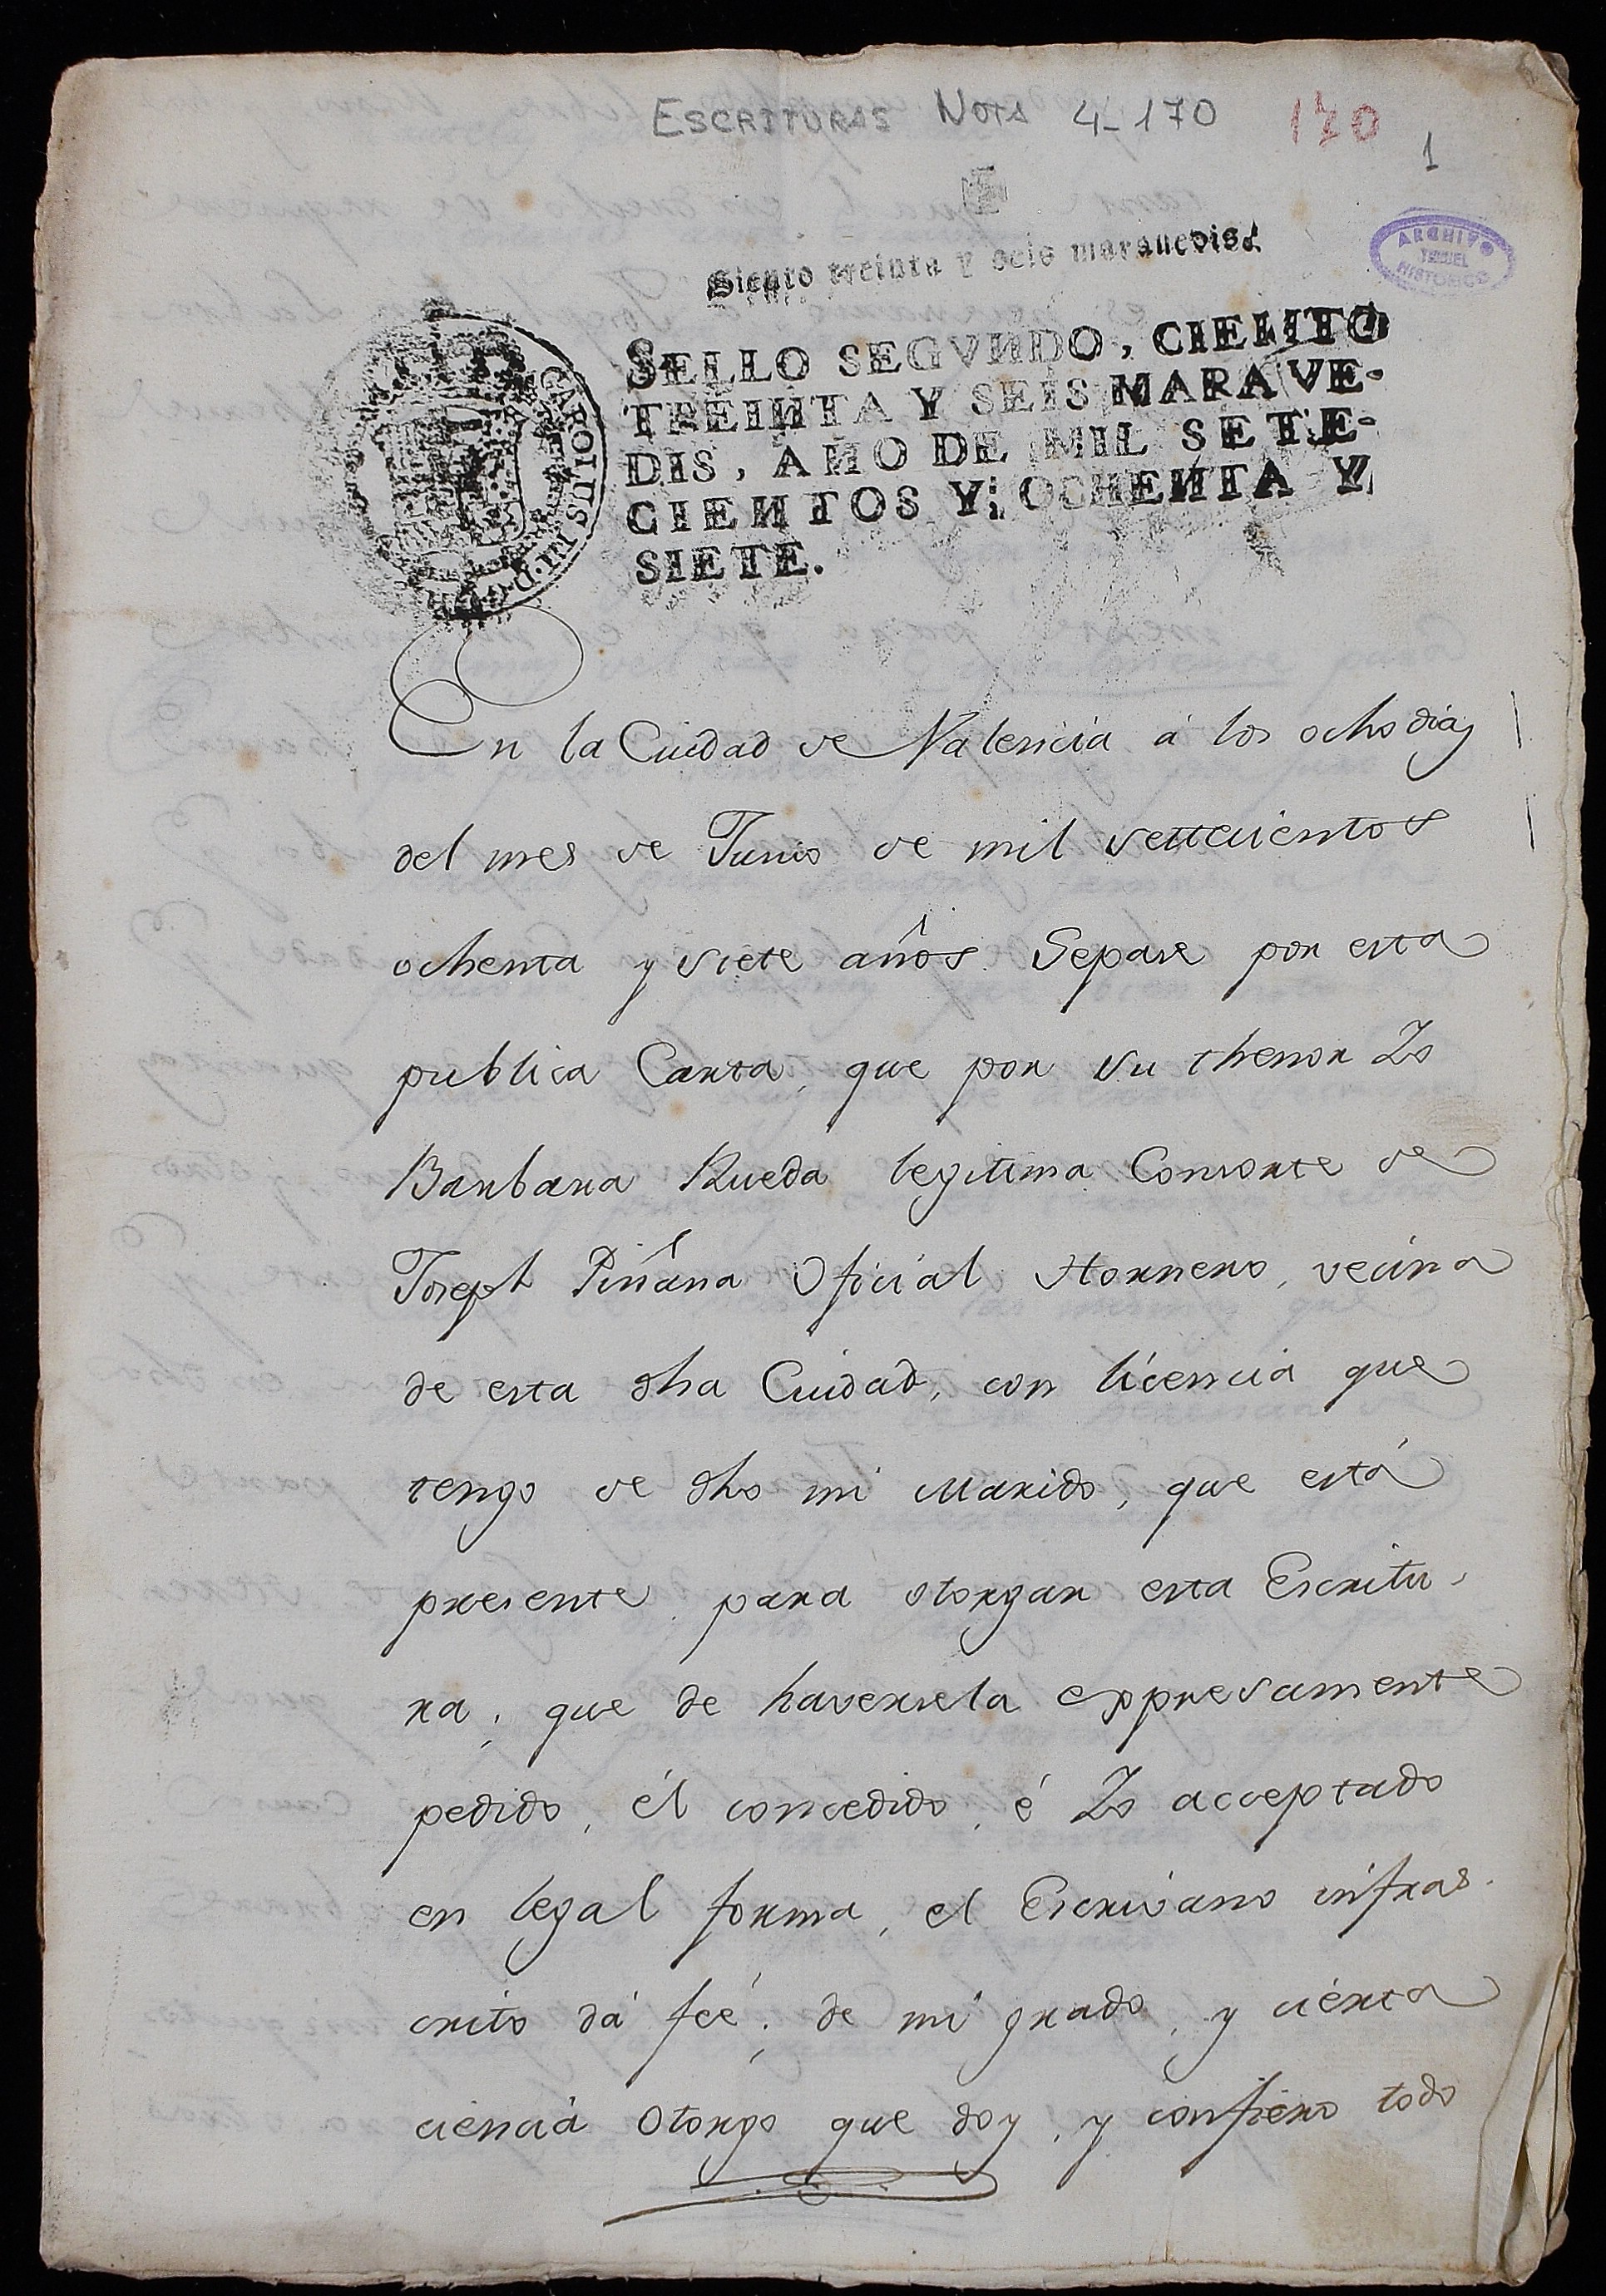 ESCRITURAS NOTA 4-170 170
1
ARCHIVO
TERUEL
HISTORICO
Siento treinta y seis marauedis.
SELLO SEGVNDO, CIENTO
TREINTA Y SEIS MARAVE-
DIS, AÑO DE MIL SETE-
CIENTOS Y OCHENTA Y
SIETE.
CAROLUS III D.G
En la Ciudad de Valencia á los ocho dias
del mes de Junio de mil settecientos
ochenta y siete años. Sepase por esta
publica Carta, que por su thenor Yo
Barbara Rueda legitima Consorte de
Joseph Piñana Oficial Hornero, vecina
de esta dha Ciudad, con licencia que
tengo de dho mi Marido, que está
presente para otorgar esta Escritu-
ra, que de haversela expresamente
pedido, él concedido, é Yo acceptado
en legal forma, el Escrivano infras-
crito dá feé; de mi grado, y cierta
ciencia Otorgo que doy, y confiero todo